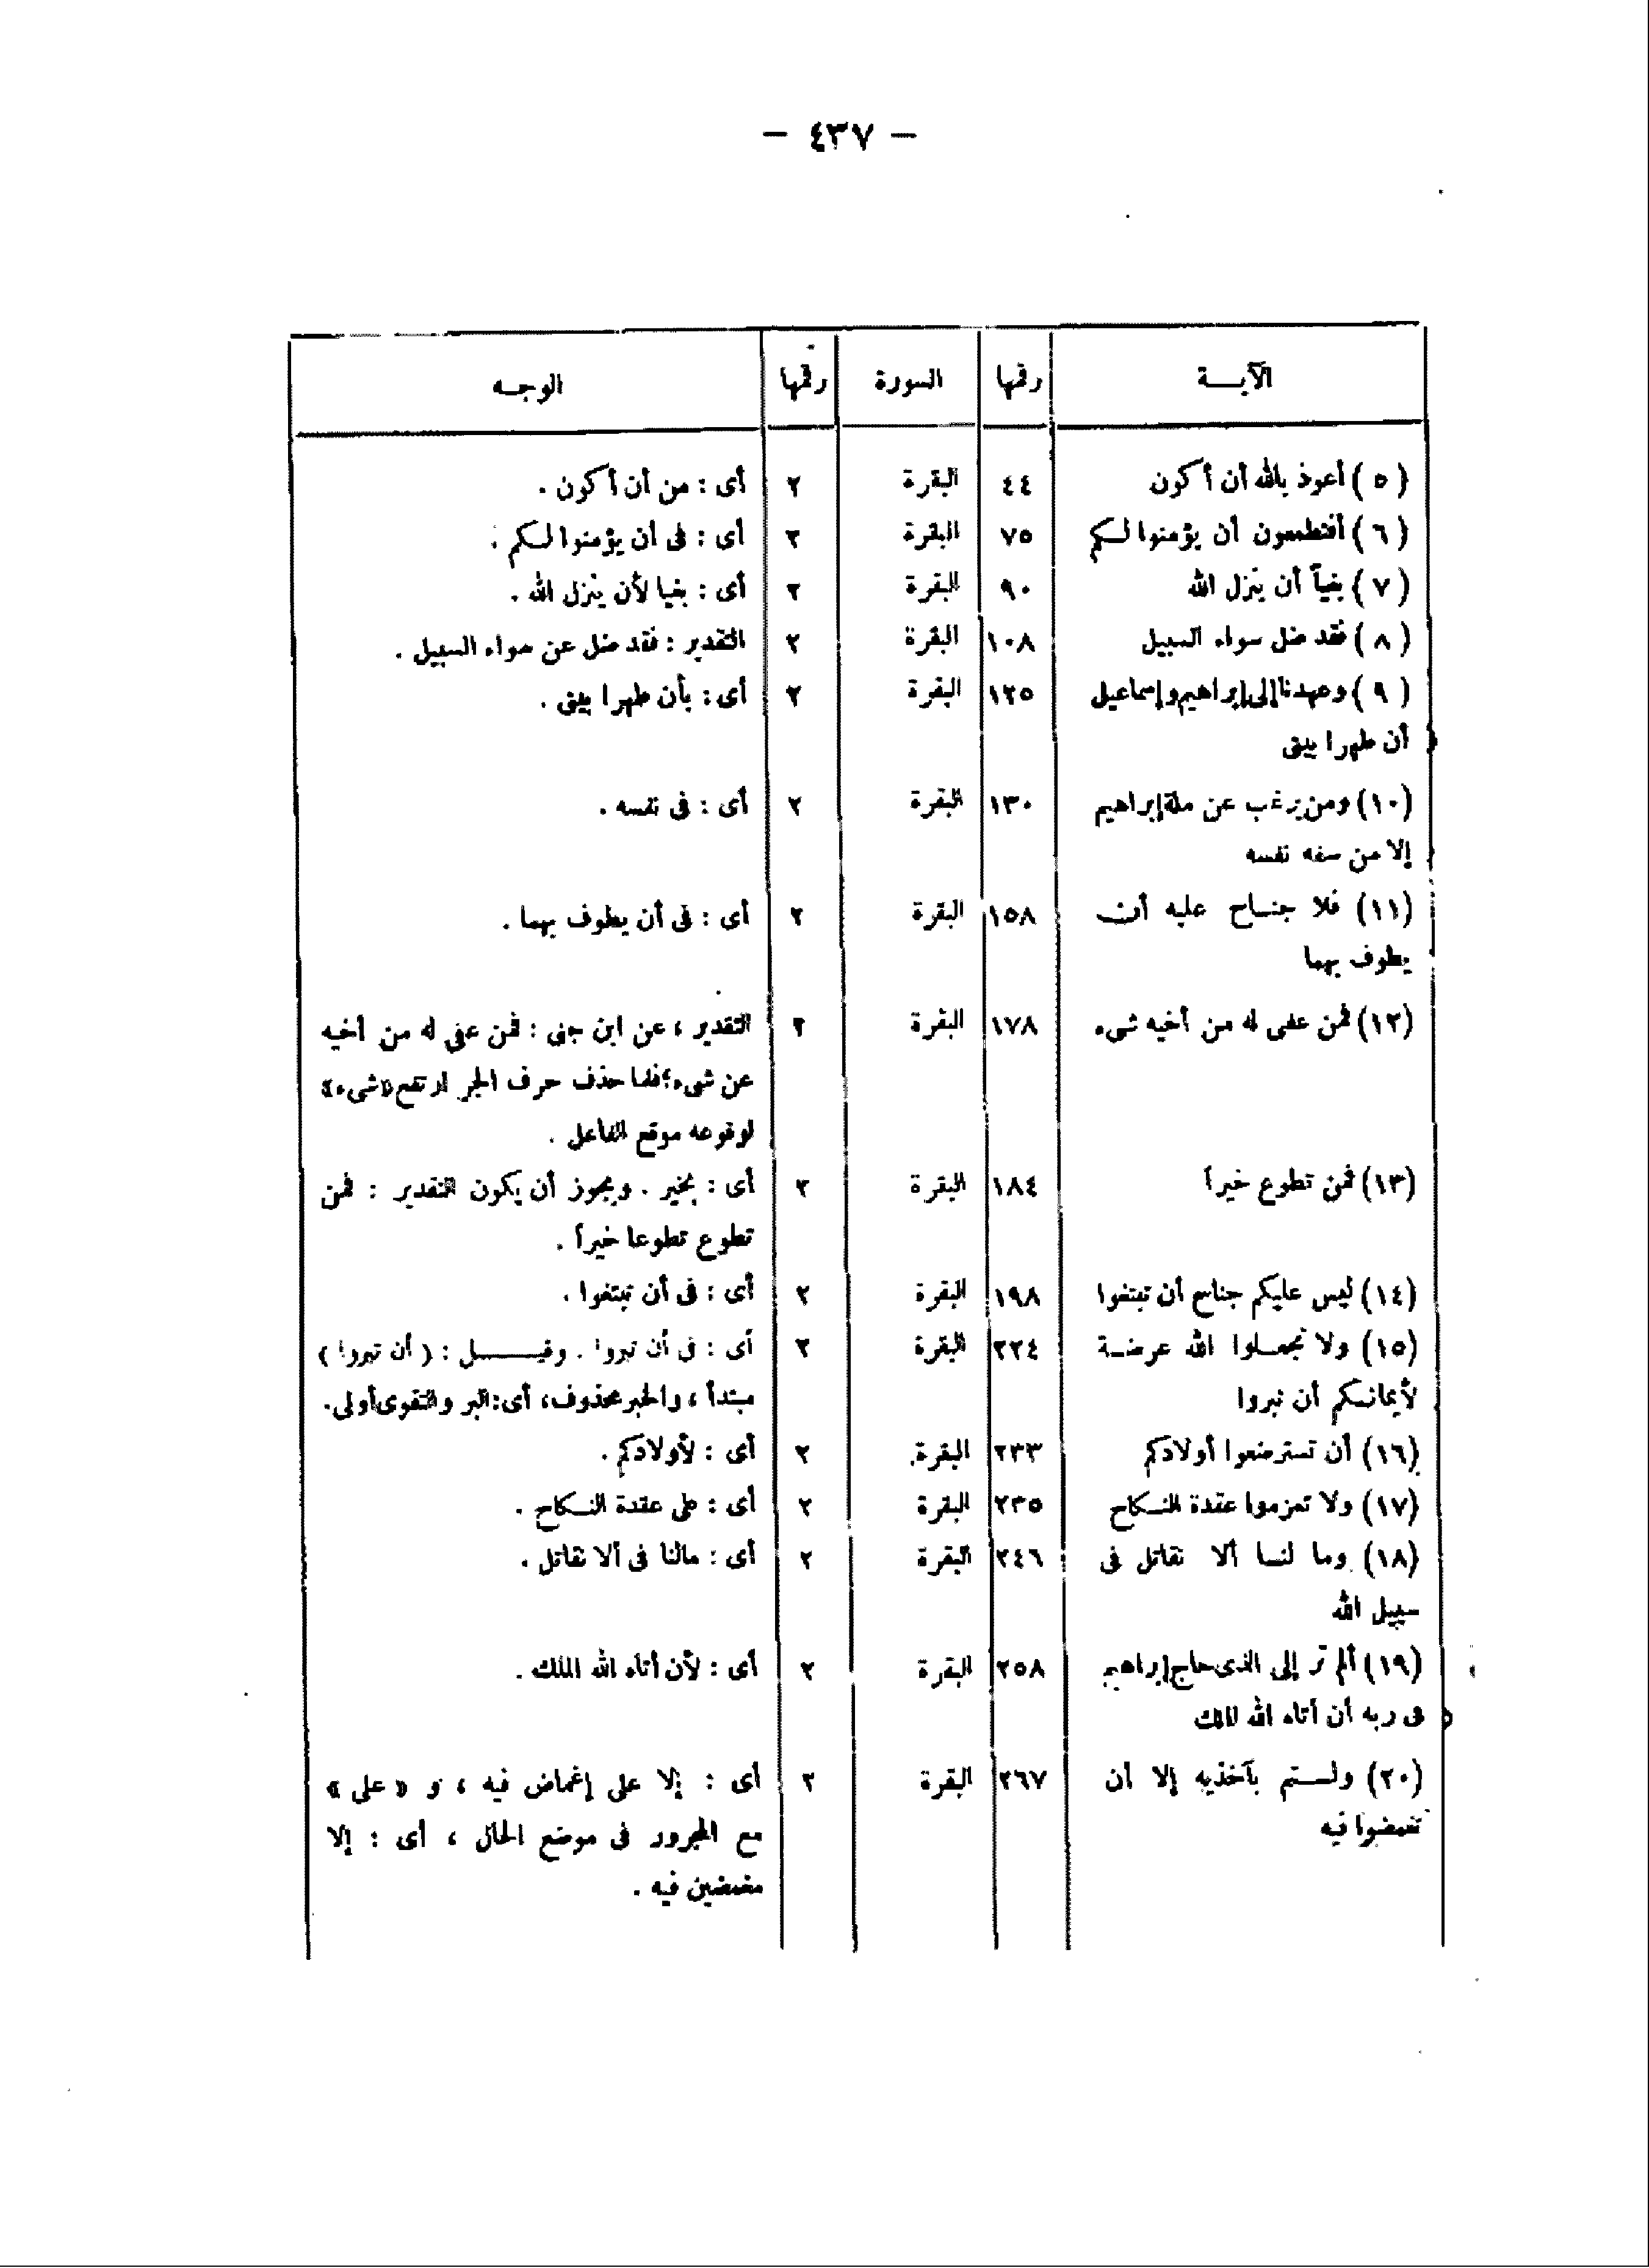 — ٤٣٧ —
الآيـــة رقمها السورة رقمها الوجـــه
( ٥ ) أعوذ بالله أن أكون ٤٤ البقرة ٢ أى : من أن أكون .
( ٦ ) أفتطمعون أن يؤمنوا لـكم ٧٥ البقرة ٢ أى : فى أن يؤمنوا لـكم .
( ٧ ) بغياً أن ينزل الله ٩٠ البقرة ٢ أى : بغيا لأن ينزل الله .
( ٨ ) فقد ضل سواء السبيل ١٠٨ البقرة ٢ التقدير : فقد ضل عن سواء السبيل .
( ٩ ) وعهدنا إلى إبراهيم وإسماعيل ١٢٥ البقرة ٢ أى : بأن طهرا بيتى .
أن طهرا بيتى
(١٠) ومن يرغب عن ملة إبراهيم ١٣٠ البقرة ٢ أى : فى نفسه .
إلا من سفه نفسه
(١١) فلا جنــاح عليه أن ١٥٨ البقرة ٢ أى : فى أن يطوف بهما .
يطوف بهما
(١٢) فمن عفى له من أخيه شىء ١٧٨ البقرة ٢ التقدير ، عن ابن جنى : فمن عفى له من أخيه
عن شىء ؛ فلما حذف حرف الجر ارتفع «شىء»
لوقوعه موقع الفاعل .
(١٣) فمن تطوع خيراً ١٨٤ البقرة ٢ أى : بخير . ويجوز أن يكون التقدير : فمن
تطوع تطوعا خيراً .
(١٤) ليس عليكم جناح أن تبتغوا ١٩٨ البقرة ٢ أى : فى أن تبتغوا .
(١٥) ولا تجعــلوا الله عرضـة ٢٢٤ البقرة ٢ أى : فى أن تبروا . وقيــــل : ( أن تبروا )
لأيمانـكم أن تبروا مبتدأ ، والخبر محذوف ، أى : البر والتقوى أولى .
(١٦) أن تسترضعوا أولادكم ٢٣٣ البقرة ٢ أى : لأولادكم .
(١٧) ولا تعزموا عقدة النـكاح ٢٣٥ البقرة ٢ أى : على عقدة النـكاح .
(١٨) وما لنــا ألا نقاتل فى ٢٤٦ البقرة ٢ أى : مالنا فى ألا نقاتل .
سبيل الله
(١٩) ألم تر إلى الذى حاج إبراهيم ٢٥٨ البقرة ٢ أى : لأن أتاه الله الملك .
فى ربه أن أتاه الله الملك
(٢٠) ولســتم بآخذيه إلا أن ٢٦٧ البقرة ٢ أى : إلا على إغماض فيه ، و «على»
تغمضوا فيه مع المجرور فى موضع الحال ، أى : إلا
مغمضين فيه .